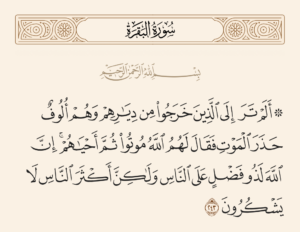 سُورَةُ البَقَرَةِ
بِسْمِ اللَّهِ الرَّحْمَٰنِ الرَّحِيمِ
۞ أَلَمْ تَرَ إِلَى الَّذِينَ خَرَجُوا مِن دِيَارِهِمْ وَهُمْ أُلُوفٌ
حَذَرَ الْمَوْتِ فَقَالَ لَهُمُ اللَّهُ مُوتُوا ثُمَّ أَحْيَاهُمْ ۚ إِنَّ
اللَّهَ لَذُو فَضْلٍ عَلَى النَّاسِ وَلَٰكِنَّ أَكْثَرَ النَّاسِ لَا
يَشْكُرُونَ ٢٤٣